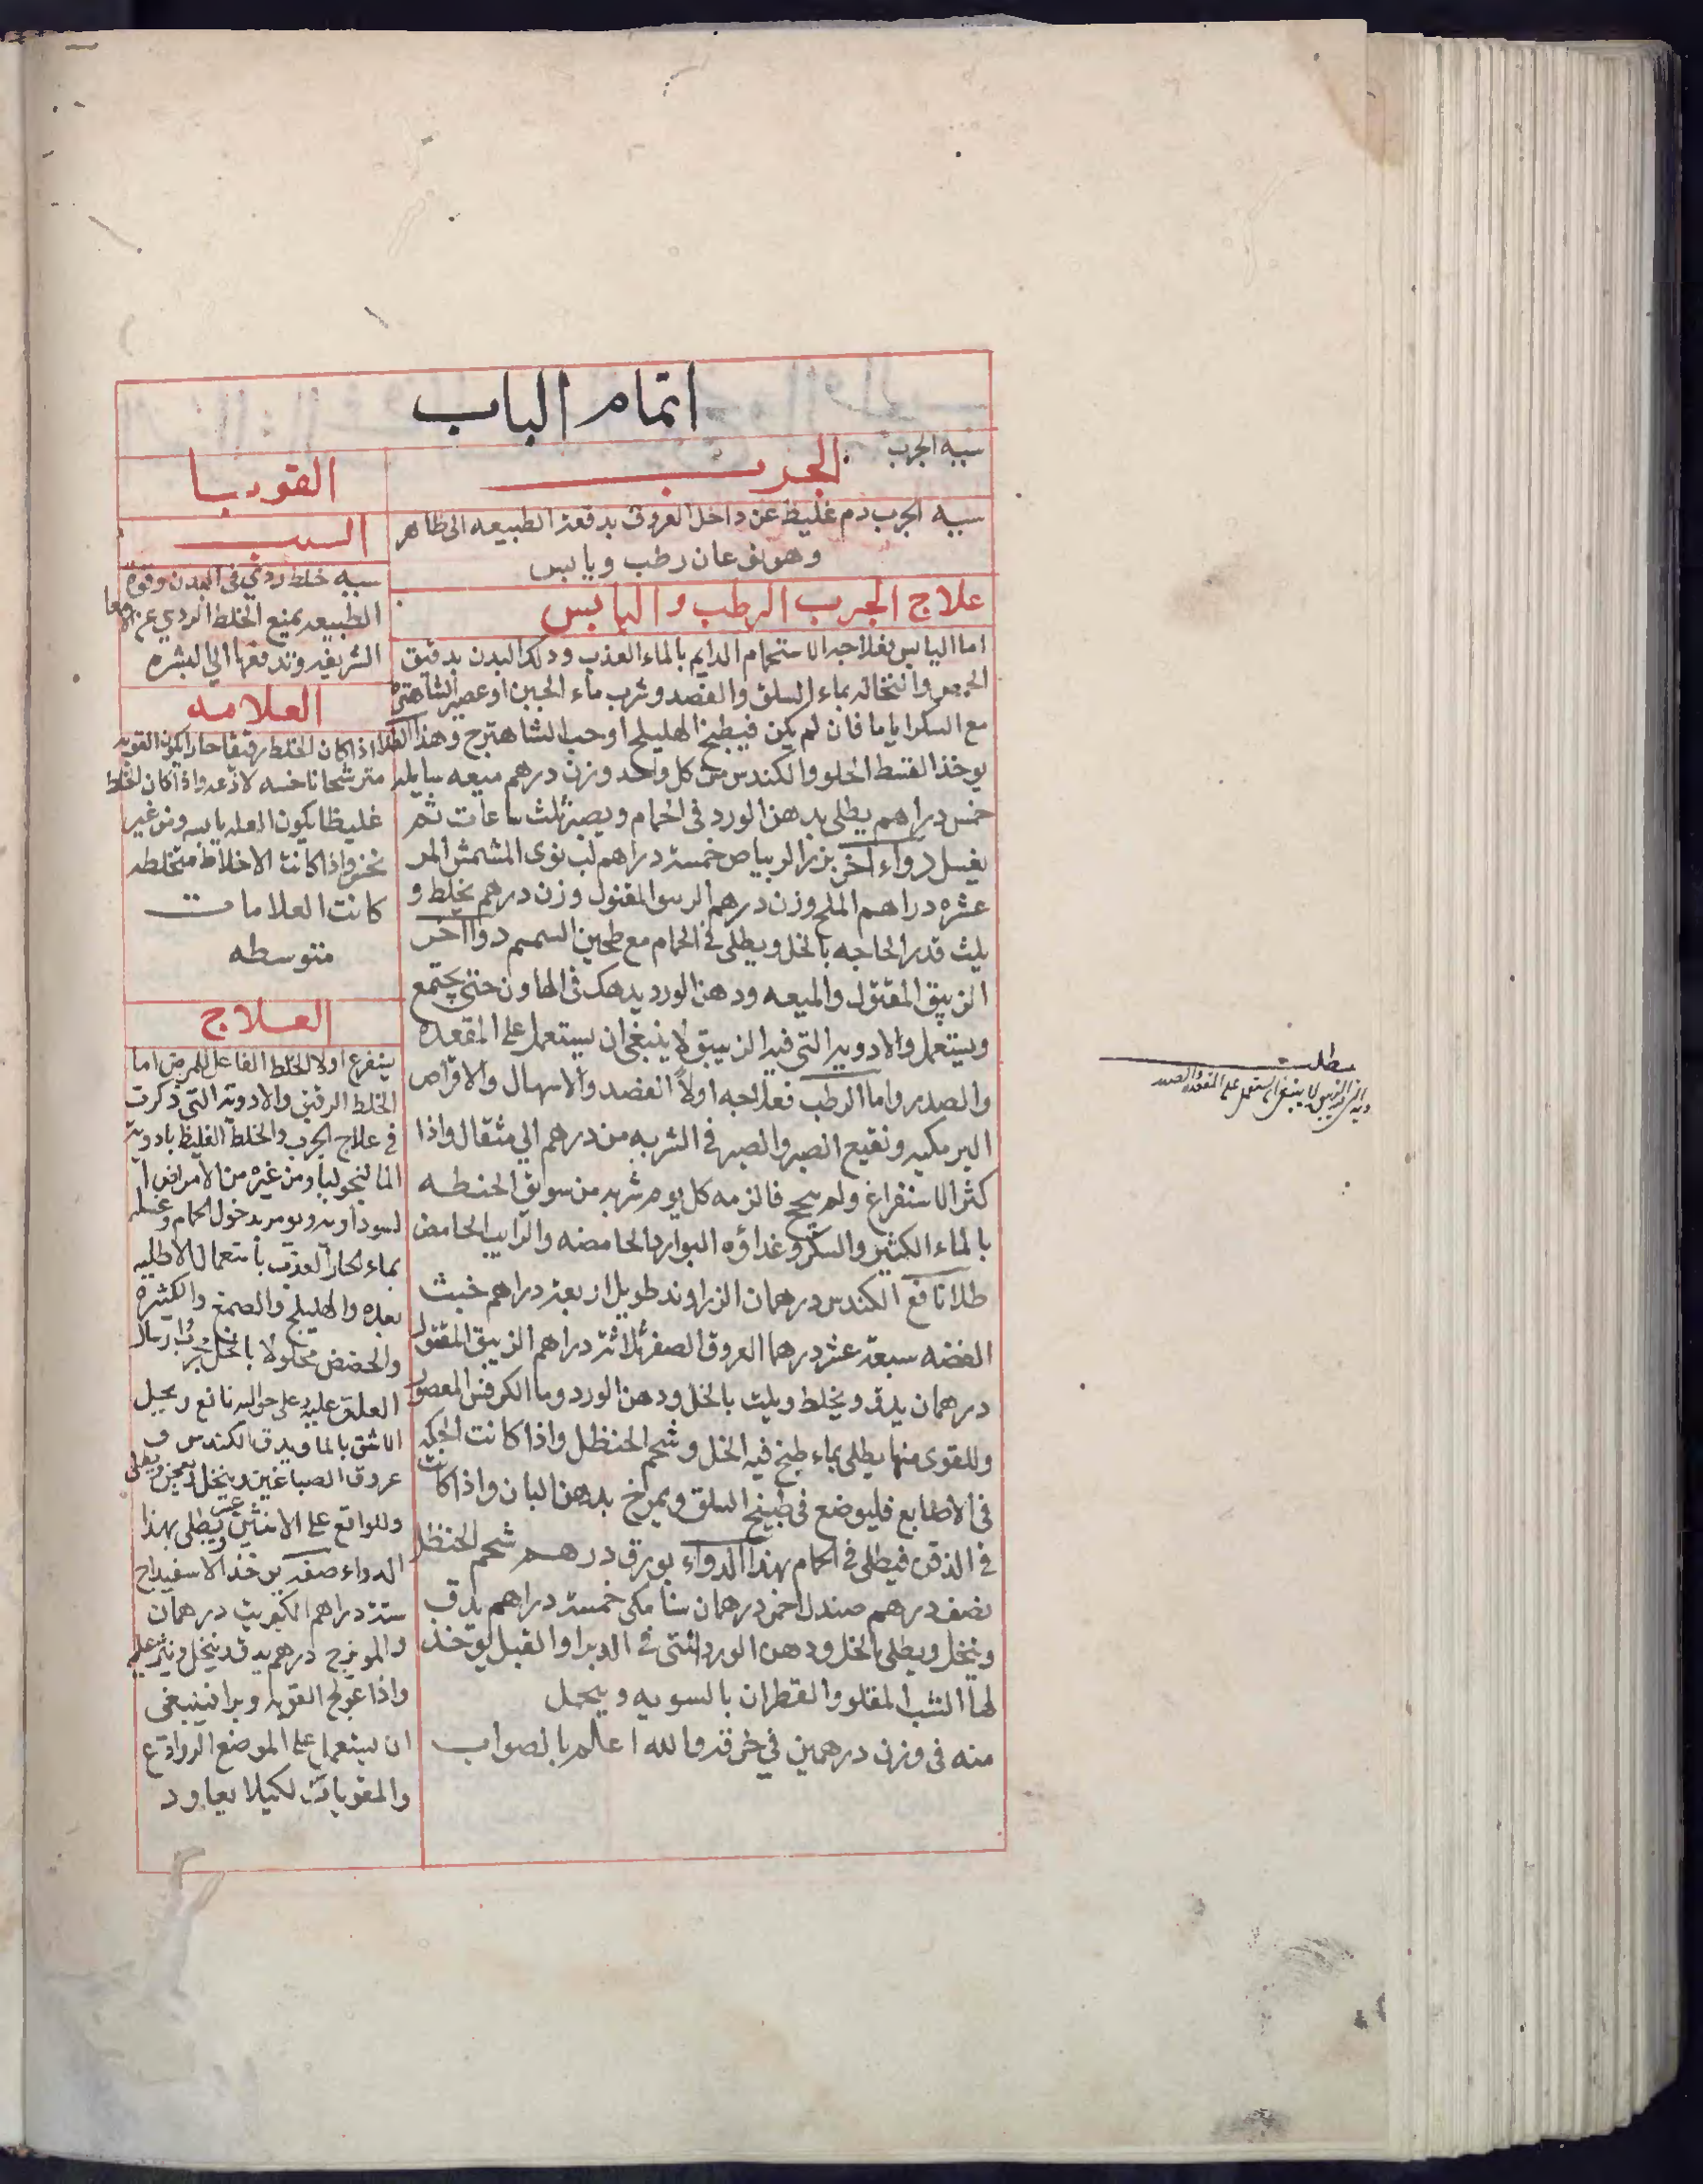 اتمام الباب
سببه الجرب
الجرب
سببه الجرب دم غليظ عن داخل العروق بدفعة الطبيعه الى ظاهر
وهو نوعان رطب ويابس
علاج الجرب الرطب واليابس
اما اليابس فعلاجه الاستحمام الدايم بالماء العذب ودلك البدن بدقيق
الحمص وانخاله بماء السلق والفصد وشرب ماء الجبن او عصير الشاهترج
مع السكر اياما فان لم يكن فيطبخ الهليلج او حب الشاهترج وهذا الطلا
يوخذ القسط الحلو والكندس من كل واحد وزن درهم ميعه سايله
خمس دراهم يطلى بدهن الورد فى الحمام ويصبر ثلث ساعات ثم
يغسل دواء اخر بزر الريباص خمسة دراهم لب نوى المشمش المر
عشره دراهم الملح وزن درهم المقتول وزن درهم يخلط و
يلث قدر الحاجه بالخل ويطلى فى الحمام مع طحين السمسم دواا اخر
الزيبق المقتول والميعه ودهن الورد يدهك فى الهاون حتى يجتمع
ويستعمل والادويه التى فيه الزيبق لا ينبغى ان يستعمل على المقعده
والصدر واما الرطب فعلاجه اولاً الفصد والاسهال والاقراص
البرمكيه ونقيع الصبر والصبر فى الشربه من درهم الي مثقال واذا
كثر الاستفراغ ولم ينجح فالزمه كل يوم شربه من سويق الحنطه
بالماء الكثير والسكر وغداؤه البوارد الحامضه والرايب الحامض
طلا نافع الكندس درهمان الزراوند طويل اربعة دراهم خبث
الفضه سبعة عشر درهما العروق الصفر ثلاثة دراهم الزيبق المقتول
درهمان يدق ويخلط ويلت بالخل ودهن الورد وما الكرفس المعصور
وللقوى منها يطلى بماء طبخ فيه الخل وشحم الحنظل واذا كانت الحكه
فى الاصابع فليوضع فى طبيخ السلق ويمرخ بدهن البان واذا كانت
فى الذقن فيطلى فى الحمام بهذا الدواء بورق درهم شحم الحنظل
نصف درهم صندل احمر درهمان سنا مكى خمسة دراهم يدق
وينخل ويطلى بالخل ودهن الورد التى فى الدبر او القبل يوخذ
لها الشب المقلو والقطران بالسويه ويحمل
منه فى وزن درهمين في خرقه والله اعلم بالصواب
القوبا
السبب
سببه خلط ردي فى البدن وقوة
الطبيعه يمنع الخلط الردي عن الاعضا
الشريفه وتدفعها الي البشره
العلامه
اذا كان الخلط رقيقا حارا يكون القوبه
مترشحا ناخسه لاذعه واذا كان الخلط
غليظا يكون العله يابسه ومن غير
نخز واذا كانت الاخلاط مختلطه
كانت العلامات
متوسطه
العلاج
يستفرغ اولا الخلط الفاعل للمرض اما
الخلط الرقيق والادوية التى ذكرت
فى علاج الجرب والخلط الغليظ بادوية
المالنخوليا ومن غيره من الامراض ا
لسوداويه ويومر بدخول الحمام وغسله
بماء الحار العذب باستعمال الاطليه
بعده والهليلج والصمغ والكثيره
والحضض محلولا بالخل وارسال
العلق عليه وعلى حواليه نافع ويحيل
الاشق بالما ويدق الكندس و
عروق الصباغين وينخل ويعجن ويطلى
وللواقع على الانثيين ويطلى بهذا
الدواء صفته يوخذ الاسفيداج
ستة دراهم الكبريت درهمان
والمويزج درهم يدق وينخل وينثر عليه
واذا عولج القوبه وبرا فينبغى
ان يستعمل على الموضع الروادع
والمقويات لكيلا يعاود
مطلب
دويه التى فيه الزيبق لا ينبغى ان يستعمل على المقعده والصدر